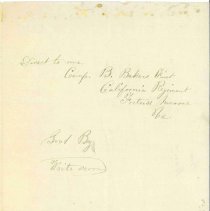 Direct to me
Comp. B. Bakers
California Regiment
Fortress Monroe
Va
Good By
Write soon
3